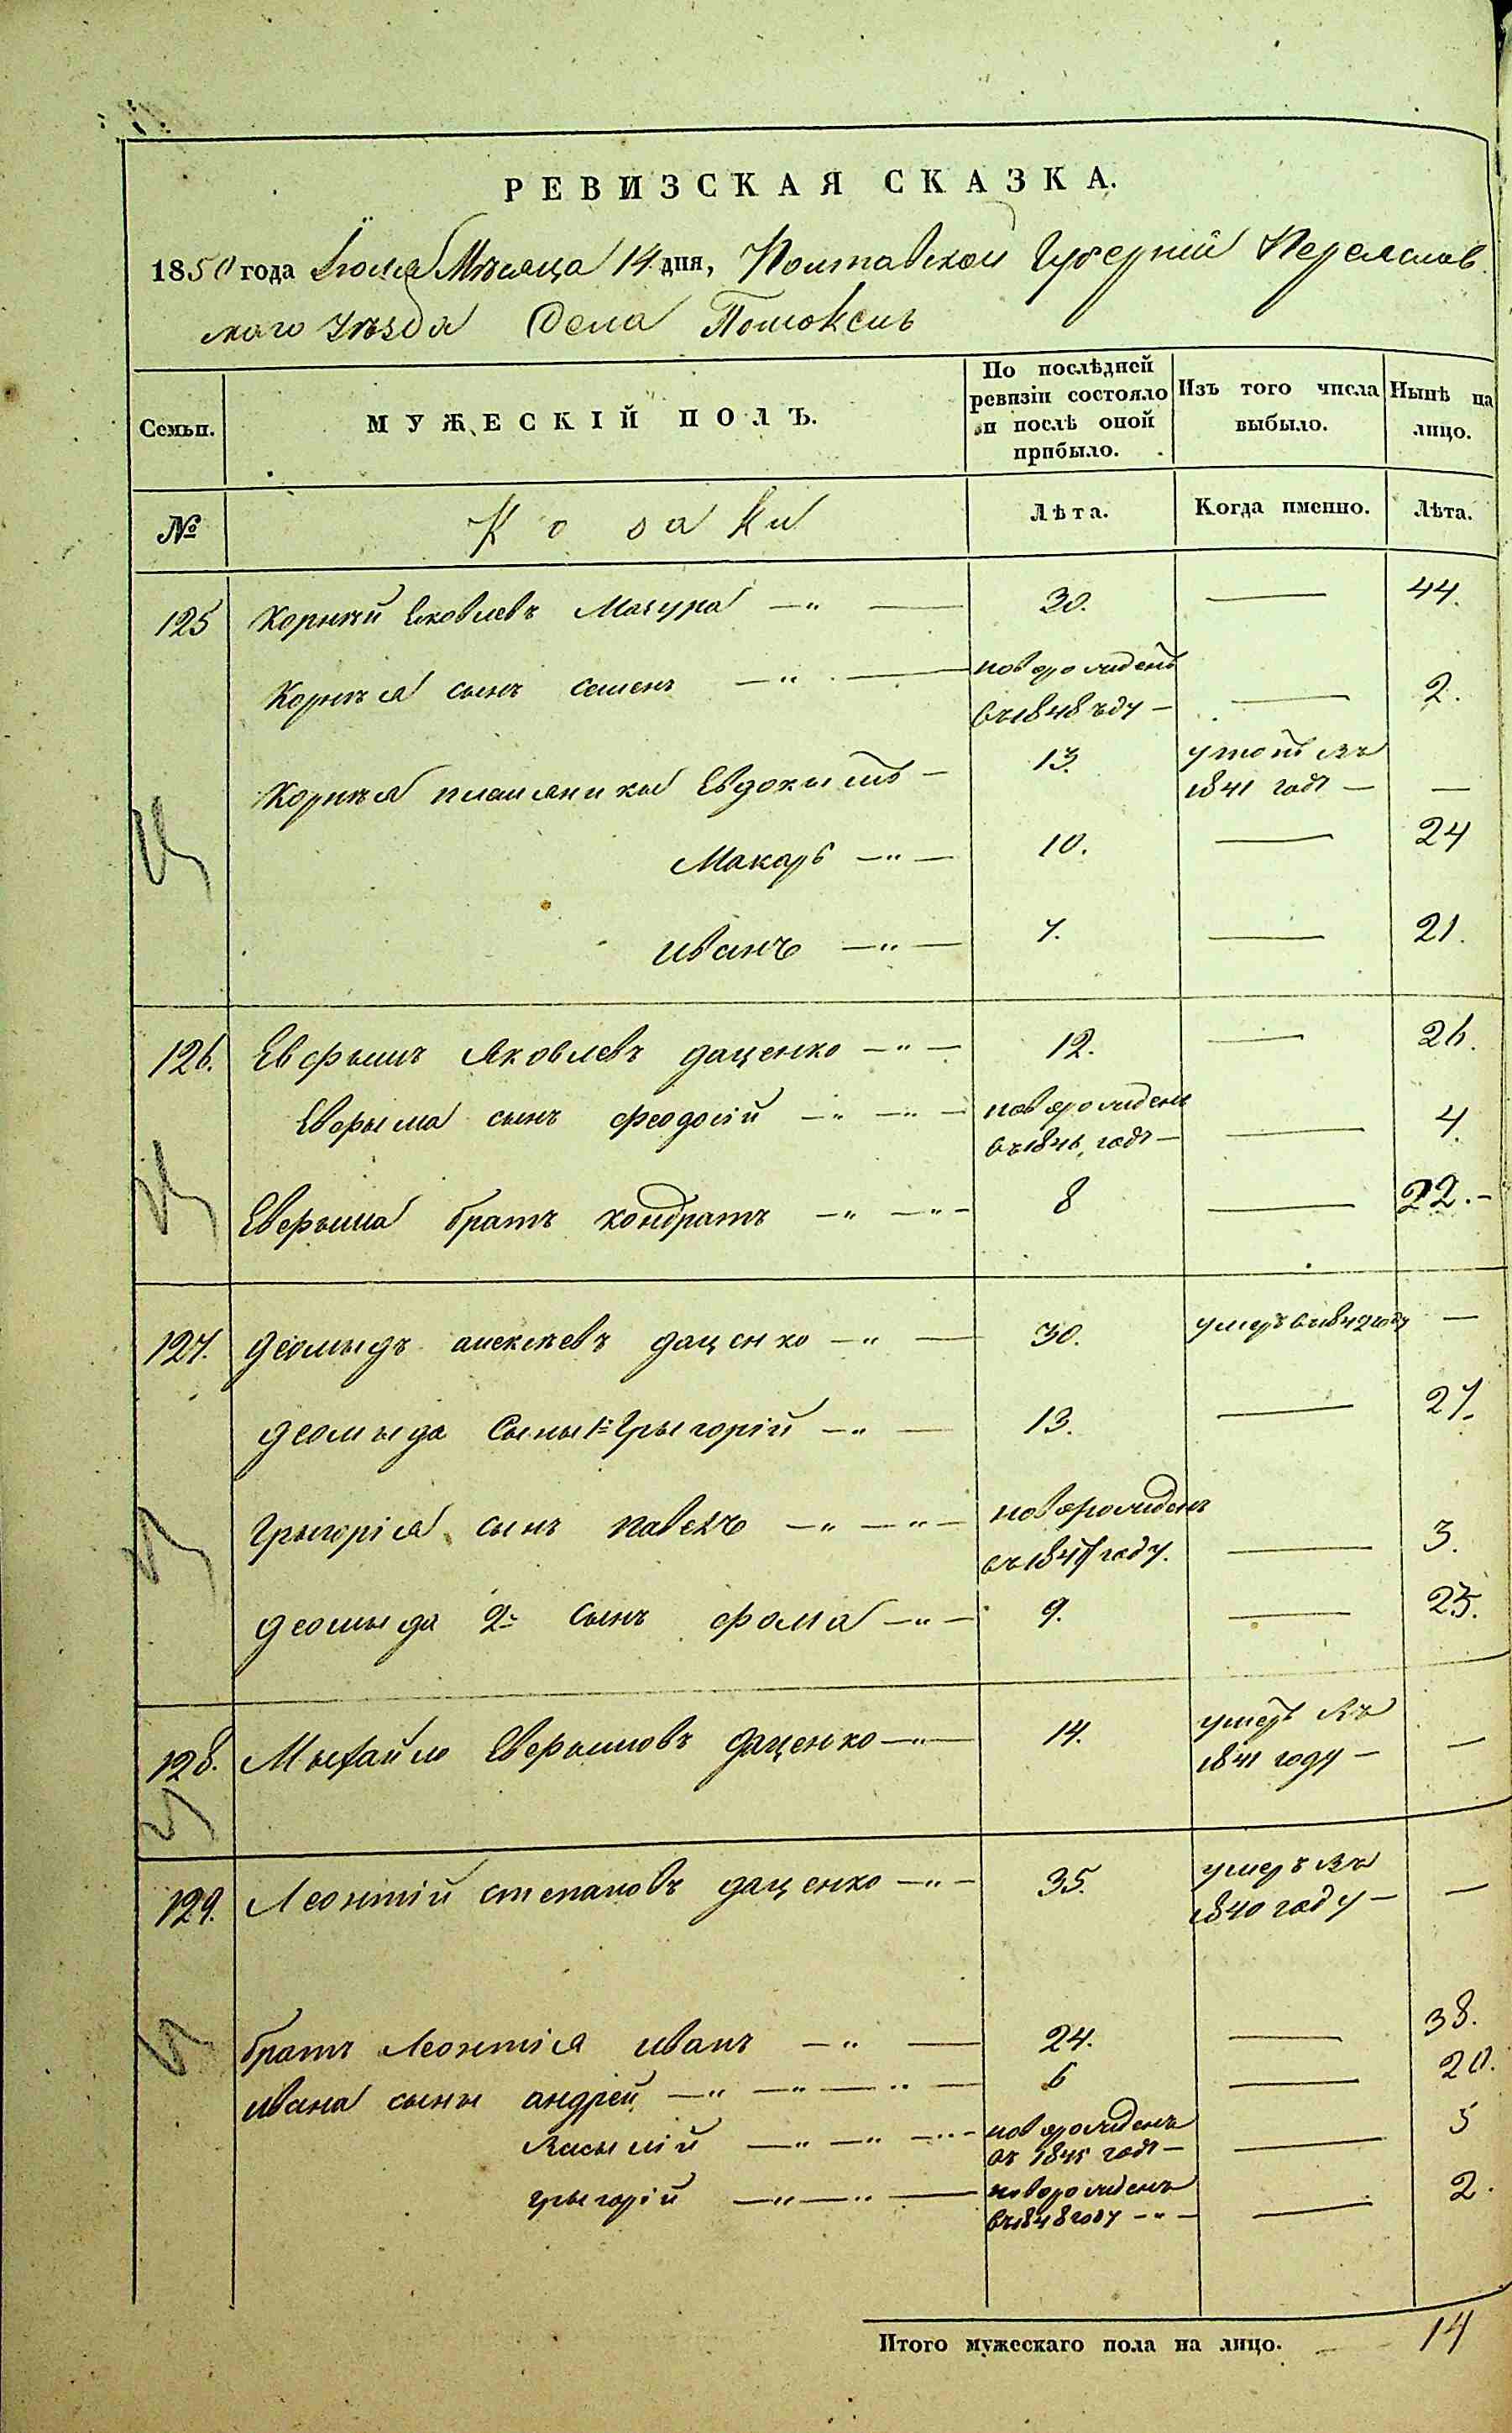 РЕВИЗСКАЯ СКАЗКА.
1850 года Іюля Мѣсяца 14 дня, Полтавской Губерніи Переяслав
скаго Уѣзда Села
Семьи. МУЖЕСКІЙ ПОЛЪ. По послѣдней ревизіи состояло и послѣ оной прибыло. Изъ того числа выбыло. Нынѣ на лицо.
№ Козаки Лѣта. Когда именно. Лѣта.
125 Корнѣй Яковлевъ Мачула —"— 30. — 44.
Корнѣя сынъ Семенъ —"— новорожденъ
въ 1848 году — — 2.
Корнѣя племяники Евдокымъ — 13. умеръ въ
1841 годѣ — —
Макаръ —"— 10. — 24
иванъ —"— 7. — 21.
126. Евфымъ Яковлевъ даценко —"— 12. — 26.
Евфыма сынъ феодосій —"—"— новорожденъ
въ 1846, годѣ — — 4.
Евфыма братъ кондратъ —"—"— 8 — 22.–
127. деомыдъ алексѣевъ даценко —"— 30. умеръ въ 1842 году —
деомыда Сыны 1й Грыгорій —"— 13. — 27.
Грыгорія сынъ павелъ —"—"— новорожденъ
въ 1847 году. — 3.
деомыда 2й сынъ фома —"— 9. — 23.
128. Мыхайло Евфымовъ даценко —"— 14. умеръ въ
1841 году — —
129. Леонтій степановъ даценко —"— 35. умеръ въ
1840 году — —
братъ Леонтія иванъ —"— 24. — 38.
ивана сыны андрей —"—"—"— 6 — 20.
Васылій —"—"—"— новорожденъ
въ 1845 годѣ — — 5
грыгорій —"—"— новорожденъ
въ 1848 году —"— — 2.
Итого мужескаго пола на лицо. — 14